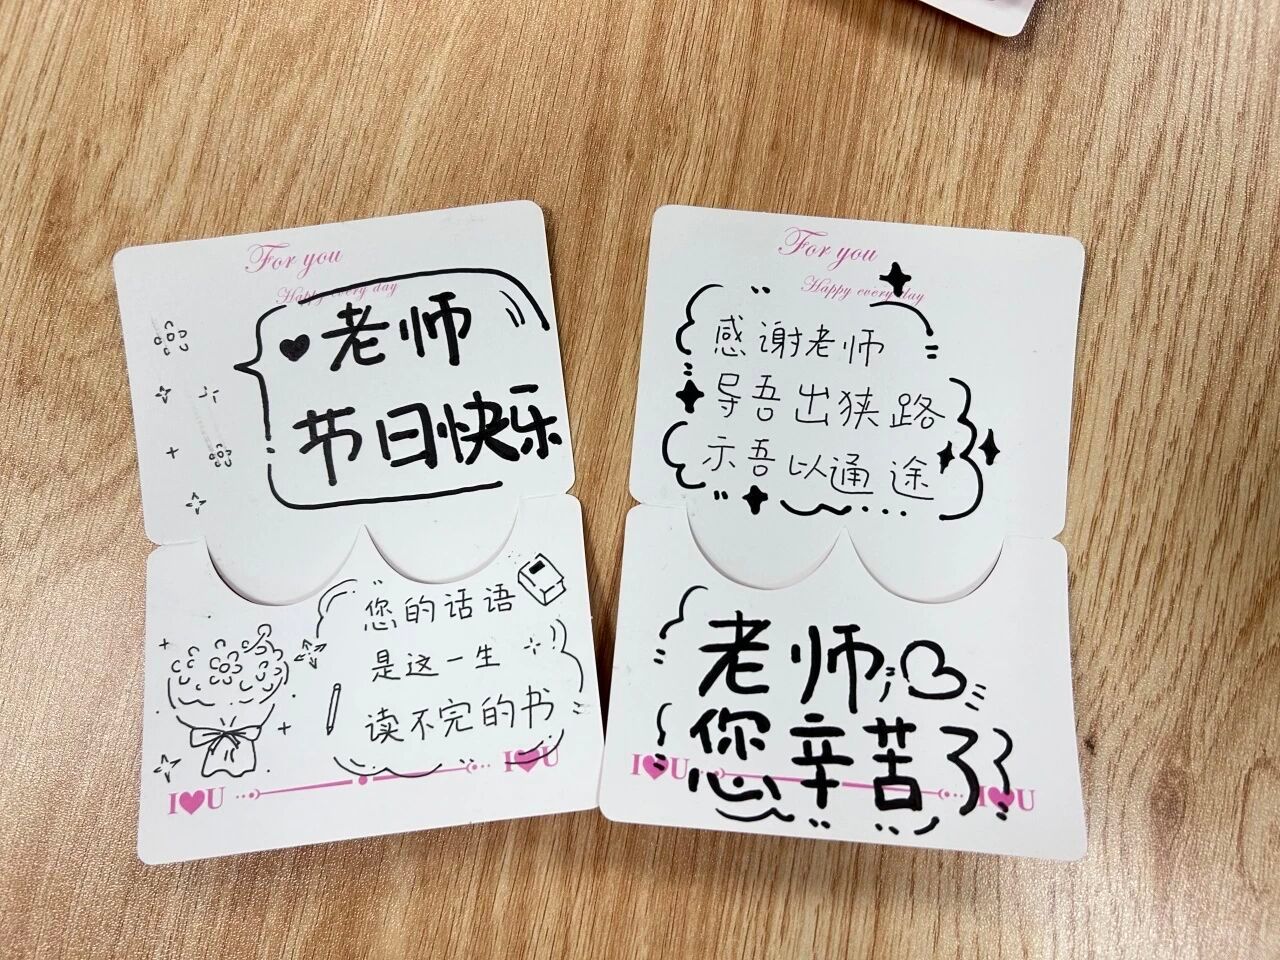 For you
Happy every day
老师
节日快乐
您的话语
是这一生
读不完的书
I♥U
I♥U
For you
Happy every day
感谢老师
导吾出狭路
示吾以通途
老师
您辛苦了
I♥U
I♥U